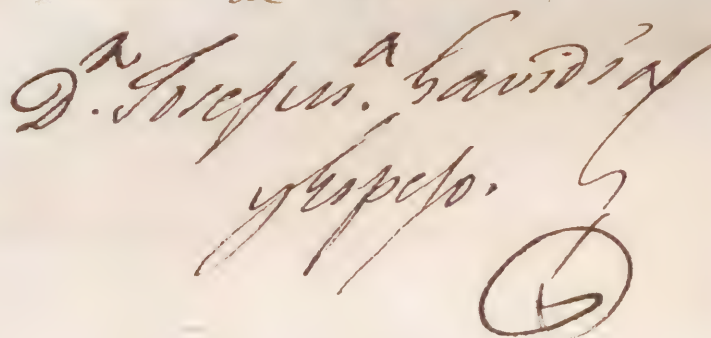 Dª. Josefmª. Gavidia
y Espejo.